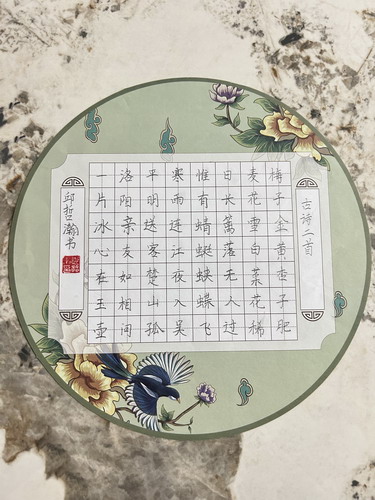 古诗二首
梅子金黄杏子肥
麦花雪白菜花稀
日长篱落无人过
惟有蜻蜓蛱蝶飞
寒雨连江夜入吴
平明送客楚山孤
洛阳亲友如相问
一片冰心在玉壶
邱哲瀚书